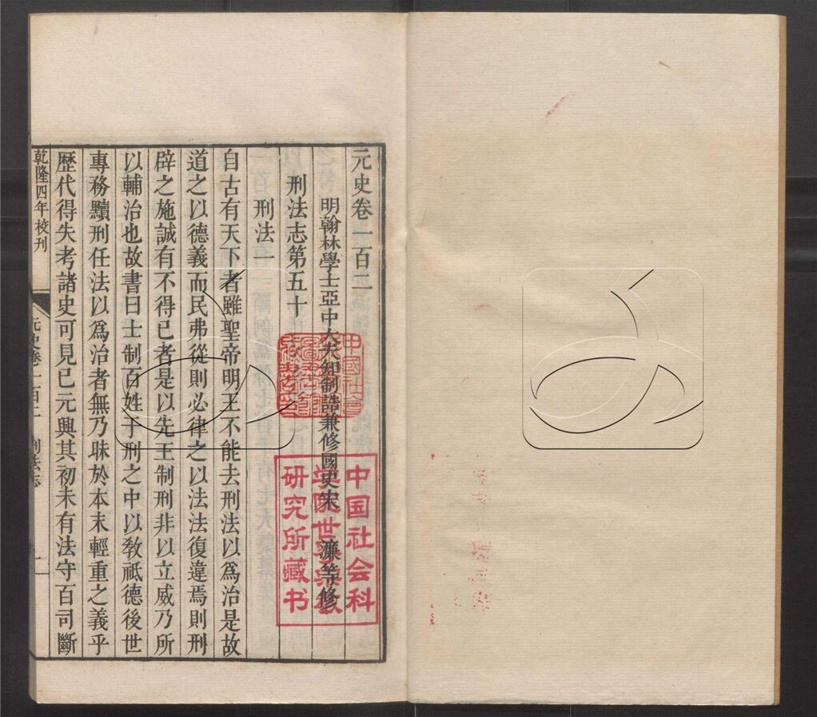 元史卷一百二
明翰林學士亞中大夫知制誥兼修國史宋濂等修
刑法志第五十
刑法一
自古有天下者雖聖帝明王不能去刑法以爲治是故
道之以德義而民弗從則必律之以法法復違焉則刑
辟之施誠有不得已者是以先王制刑非以立威乃所
以輔治也故書曰士制百姓于刑之中以敎祗德後世
專務黷刑任法以爲治者無乃昧於本末輕重之義乎
歴代得失考諸史可見已元興其初未有法守百司斷
乾隆四年校刊
元史卷一百二 刑法志 一
中国社会科
学院世界宗教
研究所藏书